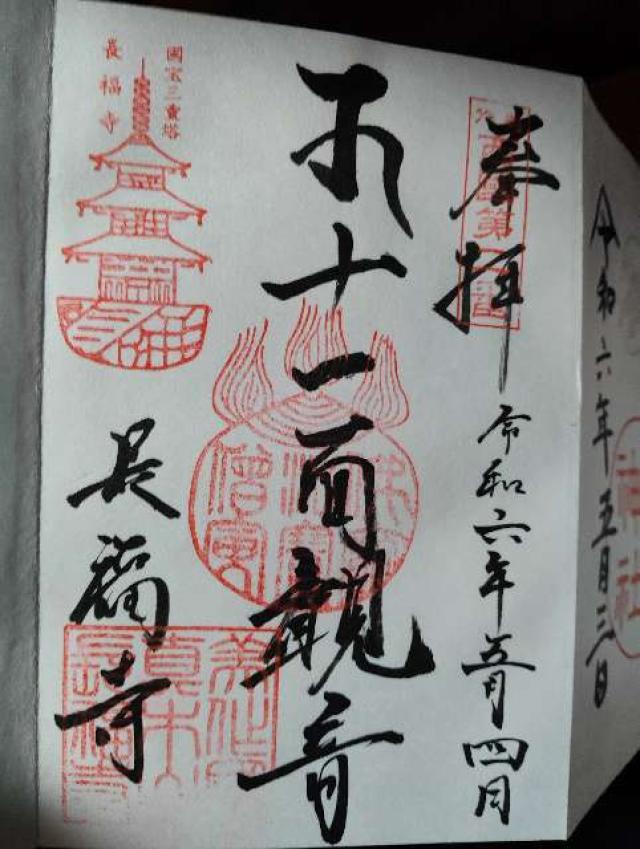 令和六年五月三日
神社
奉拝
令和六年五月四日
十一面觀音
長福寺
国宝三重塔
長福寺